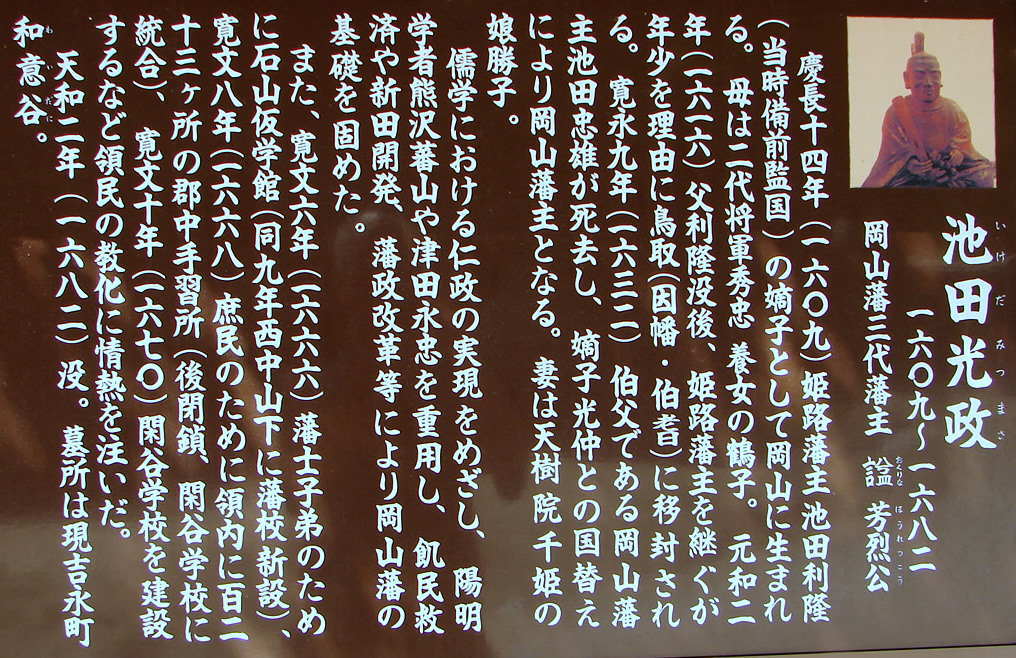 池田光政
いけだみつまさ
一六〇九〜一六八二
岡山藩三代藩主 諡 芳烈公
おくりな ほうれっこう
慶長十四年(一六〇九)姫路藩主池田利隆
(当時備前監国)の嫡子として岡山に生まれ
る。母は二代将軍秀忠 養女の鶴子。元和二
年(一六一六)父利隆没後、姫路藩主を継ぐが
年少を理由に鳥取(因幡・伯耆)に移封され
る。寛永九年(一六三二)伯父である岡山藩
主池田忠雄が死去し、嫡子光仲との国替え
により岡山藩主となる。妻は天樹院千姫の
娘勝子。
儒学における仁政の実現をめざし、陽明
学者熊沢蕃山や津田永忠を重用し、飢民救
済や新田開発、藩政改革等により岡山藩の
基礎を固めた。
また、寛文六年(一六六六)藩士子弟のため
に石山仮学館(同九年西中山下に藩校新設)、
寛文八年(一六六八)庶民のために領内に百二
十三ヶ所の郡中手習所(後閉鎖、閑谷学校に
統合)、寛文十年(一六七〇)閑谷学校を建設
するなど領民の教化に情熱を注いだ。
天和二年(一六八二)没。墓所は現吉永町
和意谷。
わいだに